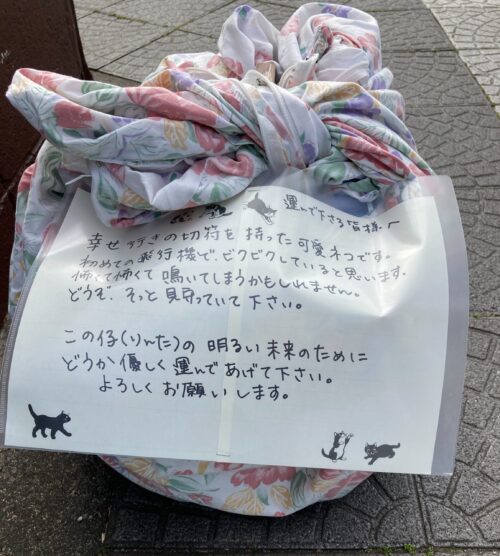 運んで下さる皆様へ
幸せ行きの切符を持った可愛ネコです。
初めての飛行機で、ビクビクしていると思います。
怖くて怖くて鳴いてしまうかもしれません。
どうぞ、そっと見守っていて下さい。
この仔(りんた)の明るい未来のために
どうか優しく運んであげて下さい。
よろしくお願いします。